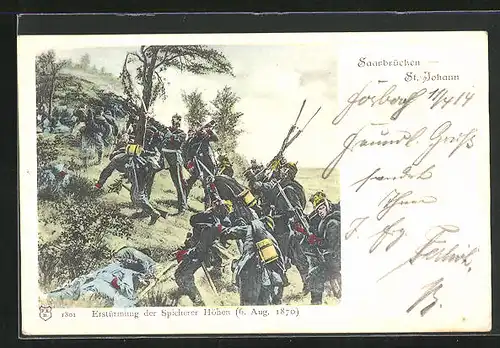 Saarbrücken —
St. Johann
Forbach 11/4 14
Freundl. Gruß
sendet
Ihnen
1801 Erstürmung der Spicherer Höhen (6. Aug. 1870)